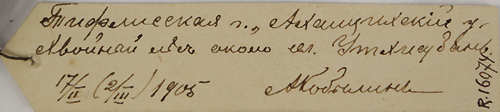 Тифлисская г., Ахалцихскій у.
Хвойный лѣсъ около м. Уткисубани
17/II (2/III) 1905 А Кобылинъ
R.16074